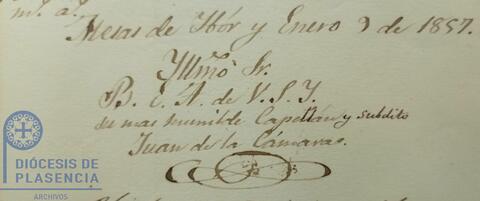 Mesas de Ibór y Enero 9 de 1857.
Yllmõ Sr.
B. E. A. de V. S. Y.
su mas humilde Capellán y subdito
Juan de la Cámaras.
DIÓCESIS DE
PLASENCIA
ARCHIVOS